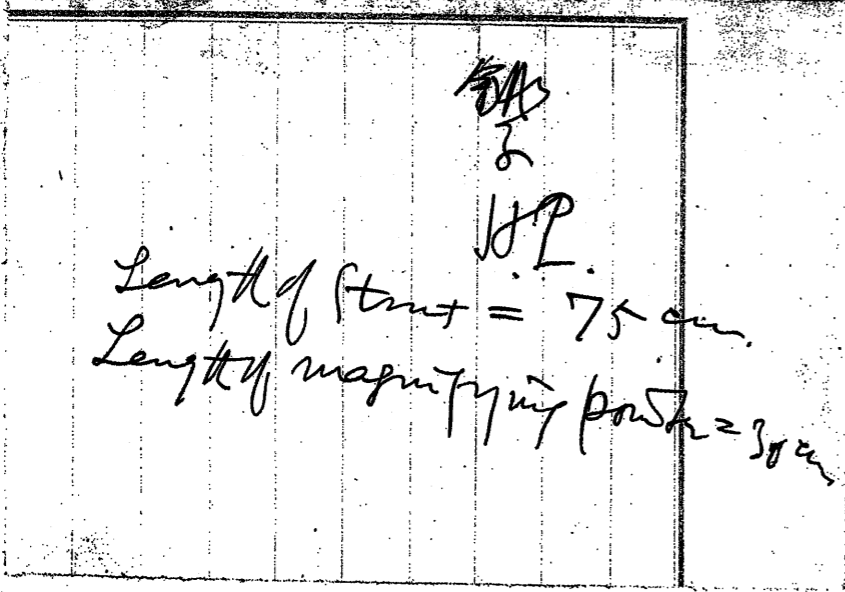 H.P.
Length of Strut = 75 cm.
Length of magnifying = 30 cm